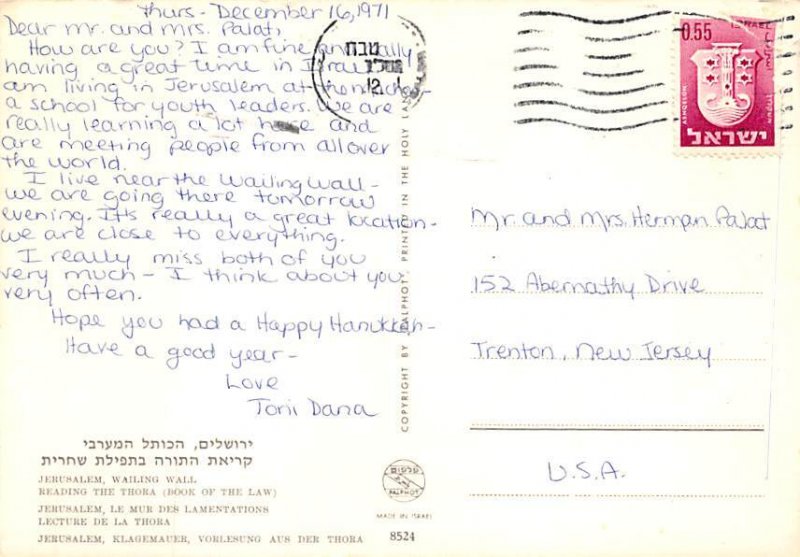 Thurs - December 16, 1971
Dear Mr. and Mrs. Palat,
How are you? I am fine and really
having a great time in Israel. I
am living in Jerusalem at the
a school for youth leaders. We are
really learning a lot here and
are meeting people from all over
the world.
I live near the Wailing Wall -
we are going there tomorrow
evening. It's really a great location -
we are close to everything.
I really miss both of you
very much - I think about you
very often.
Hope you had a Happy Hanukkah -
Have a good year -
Love
Torii Dana
ירושלים, הכותל המערבי
קריאת התורה בתפילת שחרית
JERUSALEM, WAILING WALL
READING THE THORA (BOOK OF THE LAW)
JERUSALEM, LE MUR DES LAMENTATIONS
LECTURE DE LA THORA
JERUSALEM, KLAGEMAUER, VORLESUNG AUS DER THORA
COPYRIGHT BY PALPHOT, PRINTED IN THE HOLY LAND
PALPHOT
MADE IN ISRAEL
8524
0.55
ISRAEL
ASHQELON
ישראל
Mr. and Mrs. Herman Palat
152 Abernathy Drive
Trenton, New Jersey
U.S.A.